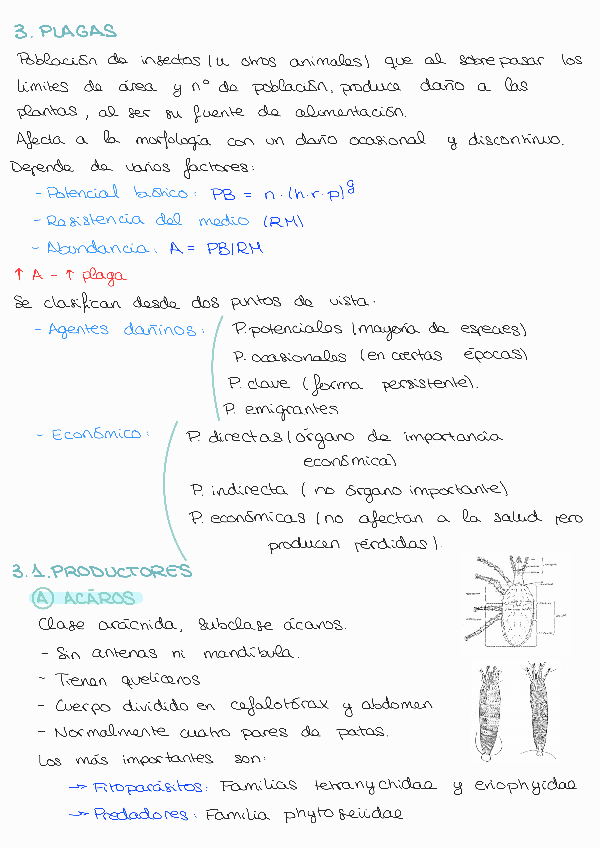 3. PLAGAS
Población de insectos (u otros animales) que al sobrepasar los
límites de área y nº de población, produce daño a las
plantas, al ser su fuente de alimentación.
Afecta a la morfología con un daño ocasional y discontinuo.
Depende de varios factores:
- Potencial biótico: PB = n·(h·r·p)^g
- Resistencia del medio (RM)
- Abundancia: A = PB/RM
↑ A - ↑ plaga
Se clasifican desde dos puntos de vista.
- Agentes dañinos: P. potenciales (mayoría de especies)
P. ocasionales (en ciertas épocas)
P. clave (forma persistente).
P. emigrantes
- Económico: P. directas (órgano de importancia
económica)
P. indirecta (no órgano importante)
P. económicas (no afectan a la salud pero
producen pérdidas).
3.1. PRODUCTORES
A ACÁROS
Clase arácnida, subclase ácaros.
- Sin antenas ni mandíbula.
- Tienen quelíceros
- Cuerpo dividido en cefalotórax y abdomen
- Normalmente cuatro pares de patas.
Los más importantes son:
→ Fitoparásitos: Familias tetranychidae y eriophyidae
→ Predadores: Familia phytoseiidae